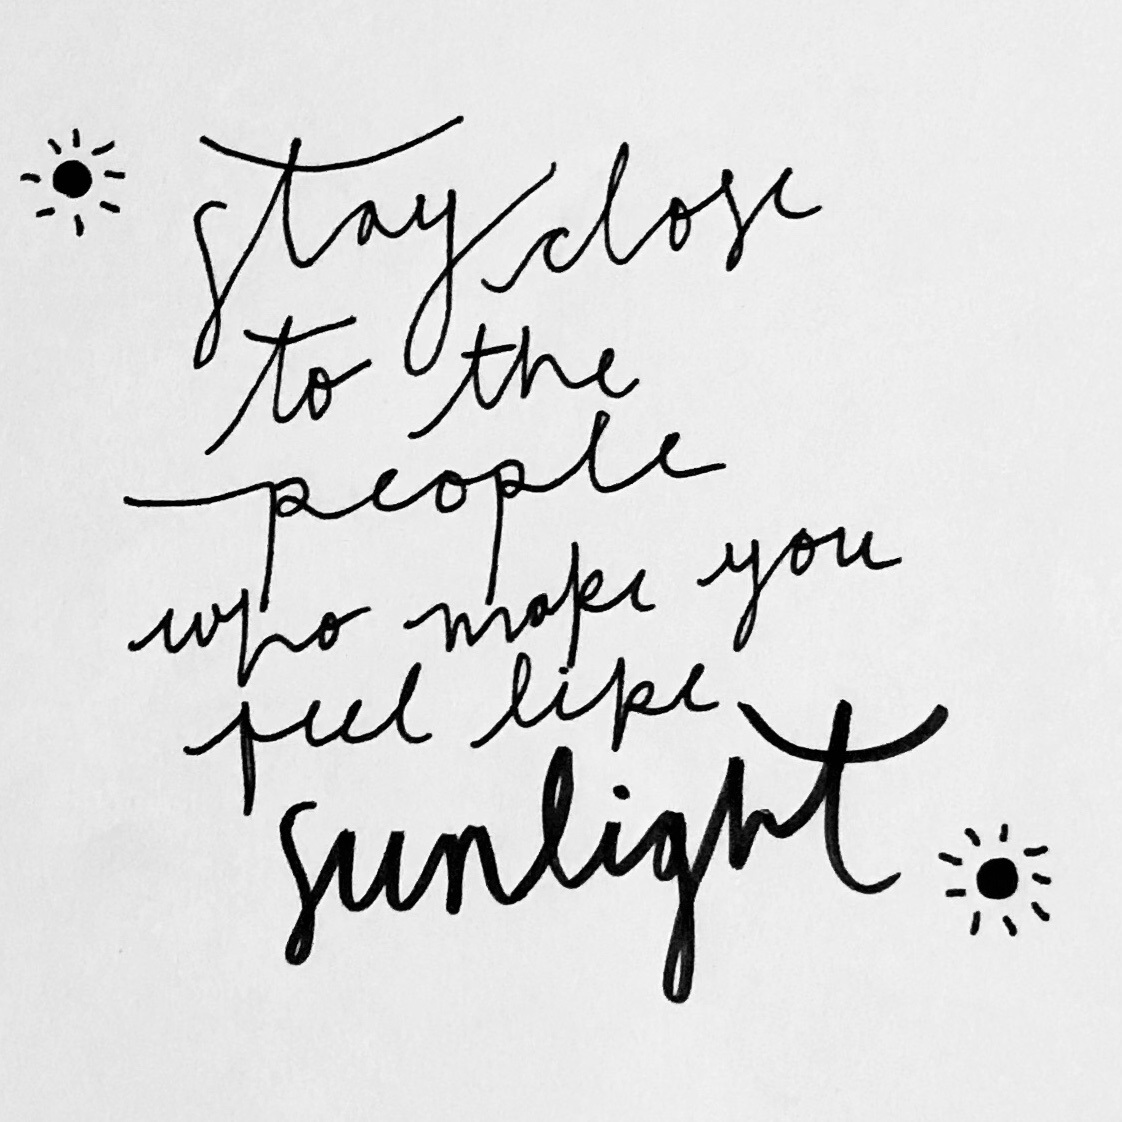 stay close
to the
people
who make you
feel like
sunlight